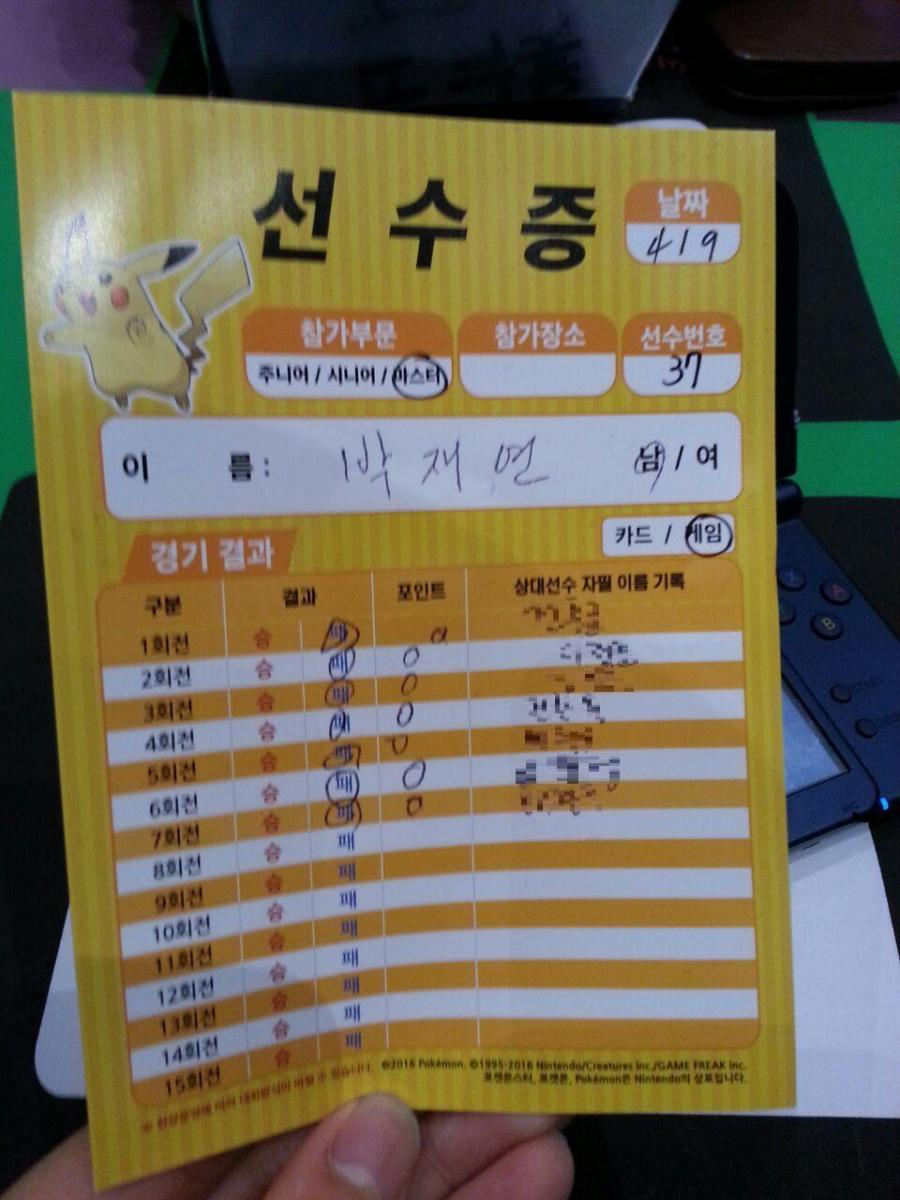 선수증
날짜
419
참가부문
참가장소
선수번호
주니어 / 시니어 / 마스터
37
이 름 : 박재연 남 / 여
카드 / 게임
경기 결과
구분 결과 포인트 상대선수 자필 이름 기록
1회전 승 패 0
2회전 승 패 0
3회전 승 패 0
4회전 승 패 0
5회전 승 패 0
6회전 승 패 0
7회전 승 패 0
8회전 승 패
9회전 승 패
10회전 승 패
11회전 승 패
12회전 승 패
13회전 승 패
14회전 승 패
15회전 승 패
※ 현장운영에 따라 대회방식이 바뀔 수 있습니다.
©2016 Pokémon. ©1995-2016 Nintendo/Creatures Inc./GAME FREAK inc.
포켓몬스터, 포켓몬, Pokémon은 Nintendo의 상표입니다.
X
A
B